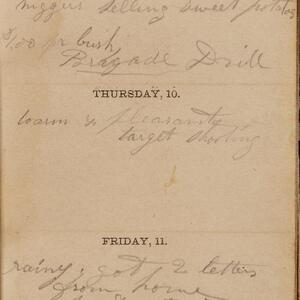 niggers selling sweet potatoes
$1.00 pr bush
Brigade Drill
THURSDAY, 10.
warm & pleasant
target shooting
FRIDAY, 11.
rainy; got 2 letters
from home